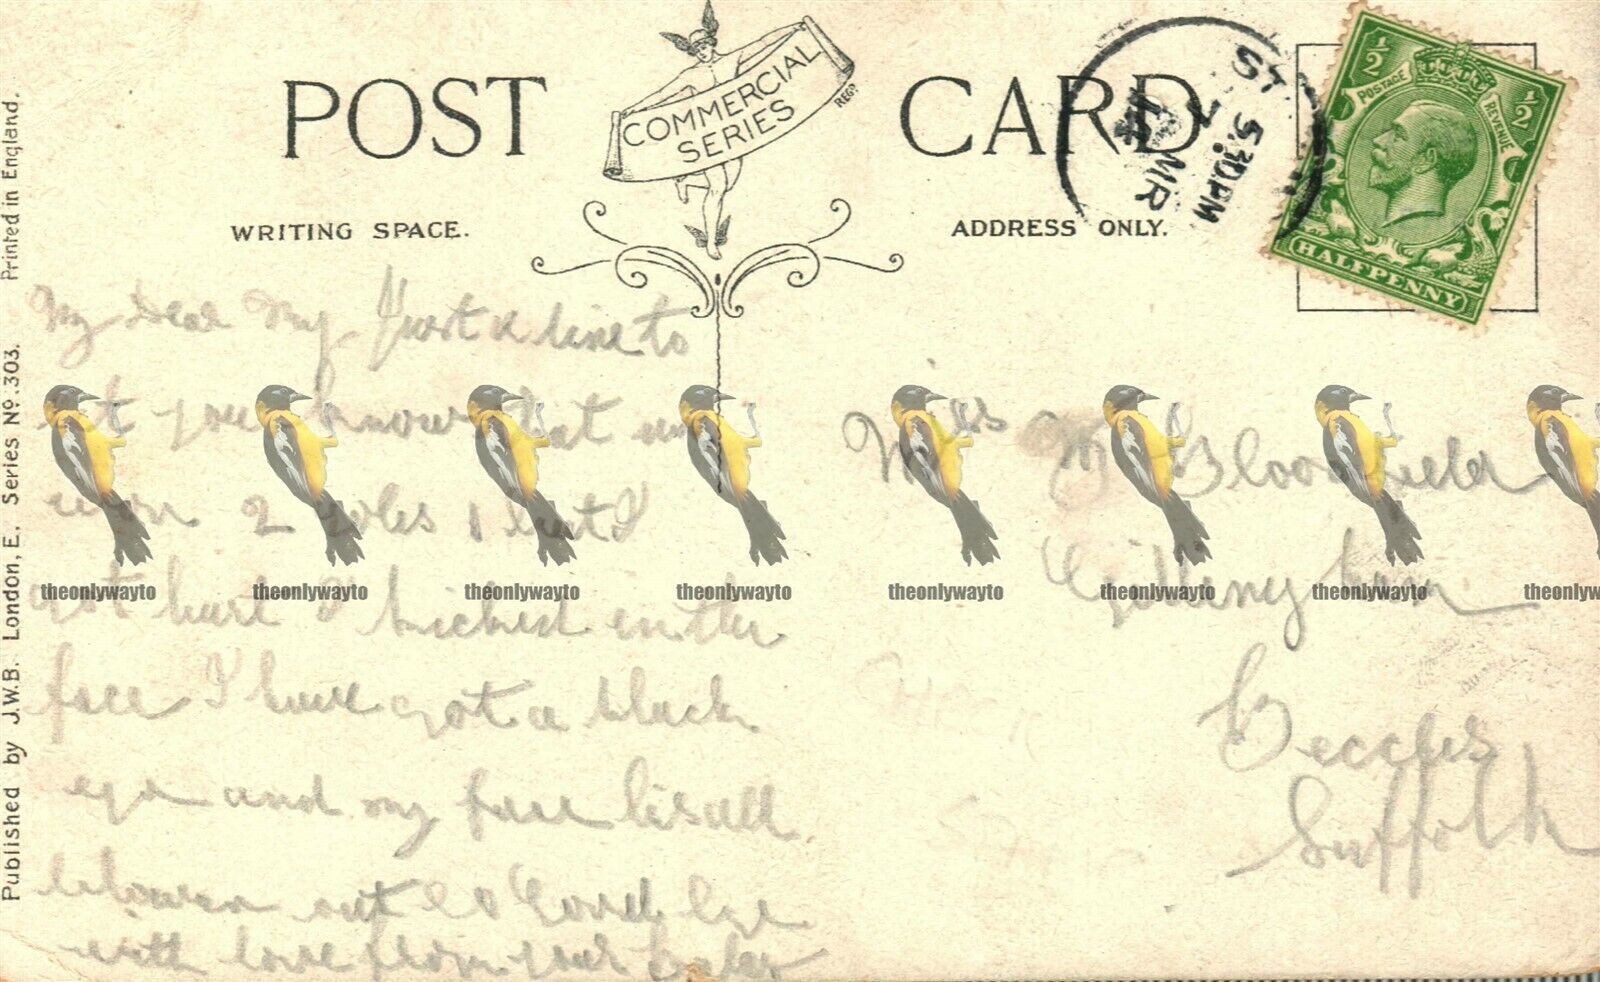 POST CARD
COMMERCIAL
SERIES
REGD
WRITING SPACE.
ADDRESS ONLY.
5.30 PM
7 MR
14
ST
POSTAGE REVENUE
½ ½
HALFPENNY
Published by J.W.B. London, E. Series No. 303. Printed in England.
My Dear My Just a line to
let you know that we
won 2 goles 1 but I
got hurt I kicked in the
face I have got a black
eye and my face is all
out so Good bye
with love from your
Miss M Bloomfield
Gillingham
Beccles
Suffolk
theonlywayto theonlywayto theonlywayto theonlywayto theonlywayto theonlywayto theonlywayto theonlyw